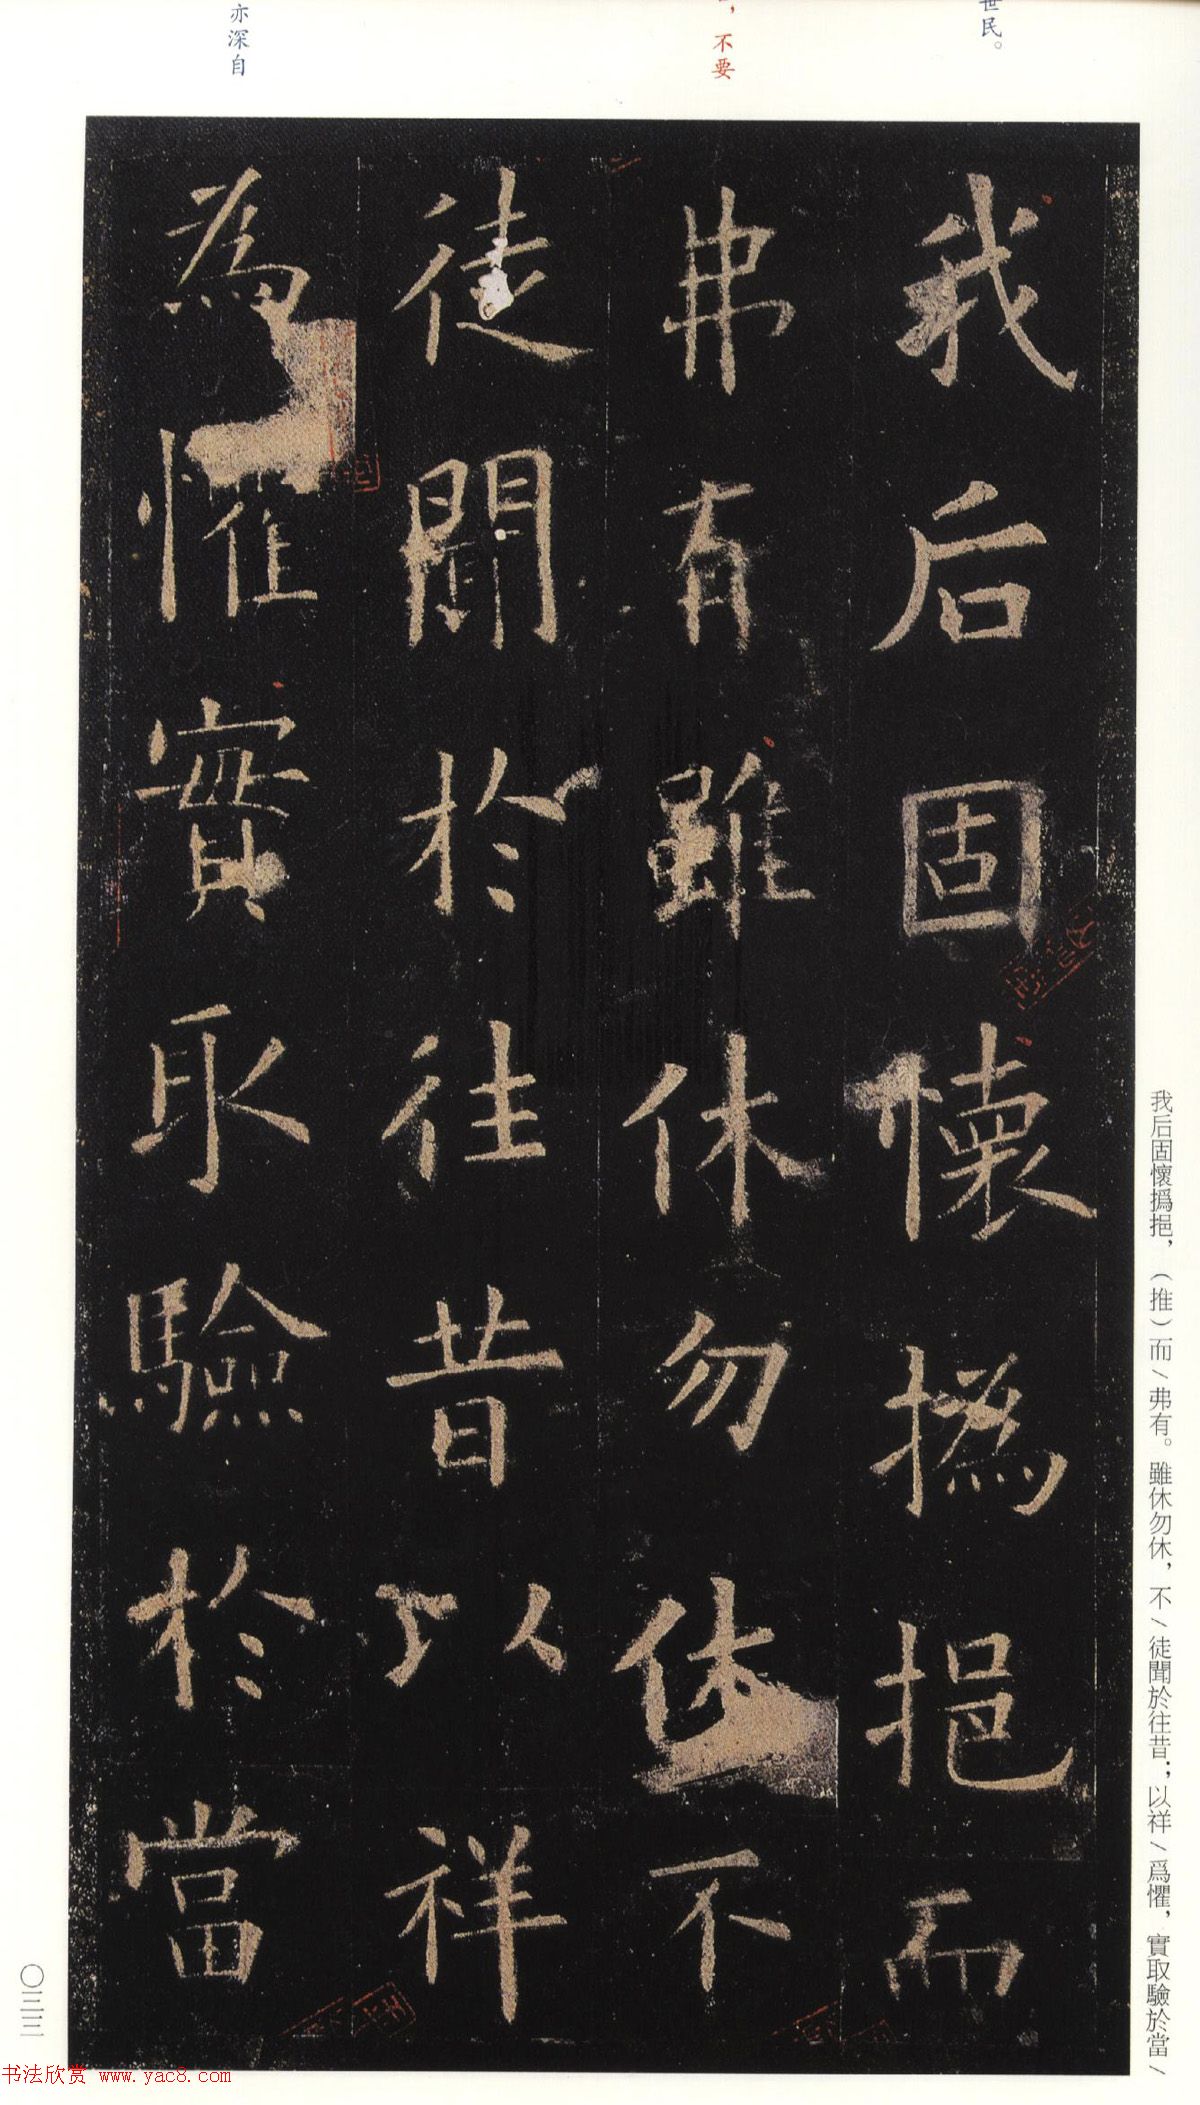 世民。
，不要
亦深自
我后固懷撝挹而
弗有雖休勿休不
徒聞於往昔以祥
為懼實取驗於當
我后固懷撝挹，（推）而/弗有。雖休勿休，不/徒聞於往昔；以祥/爲懼，實取驗於當/
〇三三
书法欣赏 www.yac8.com